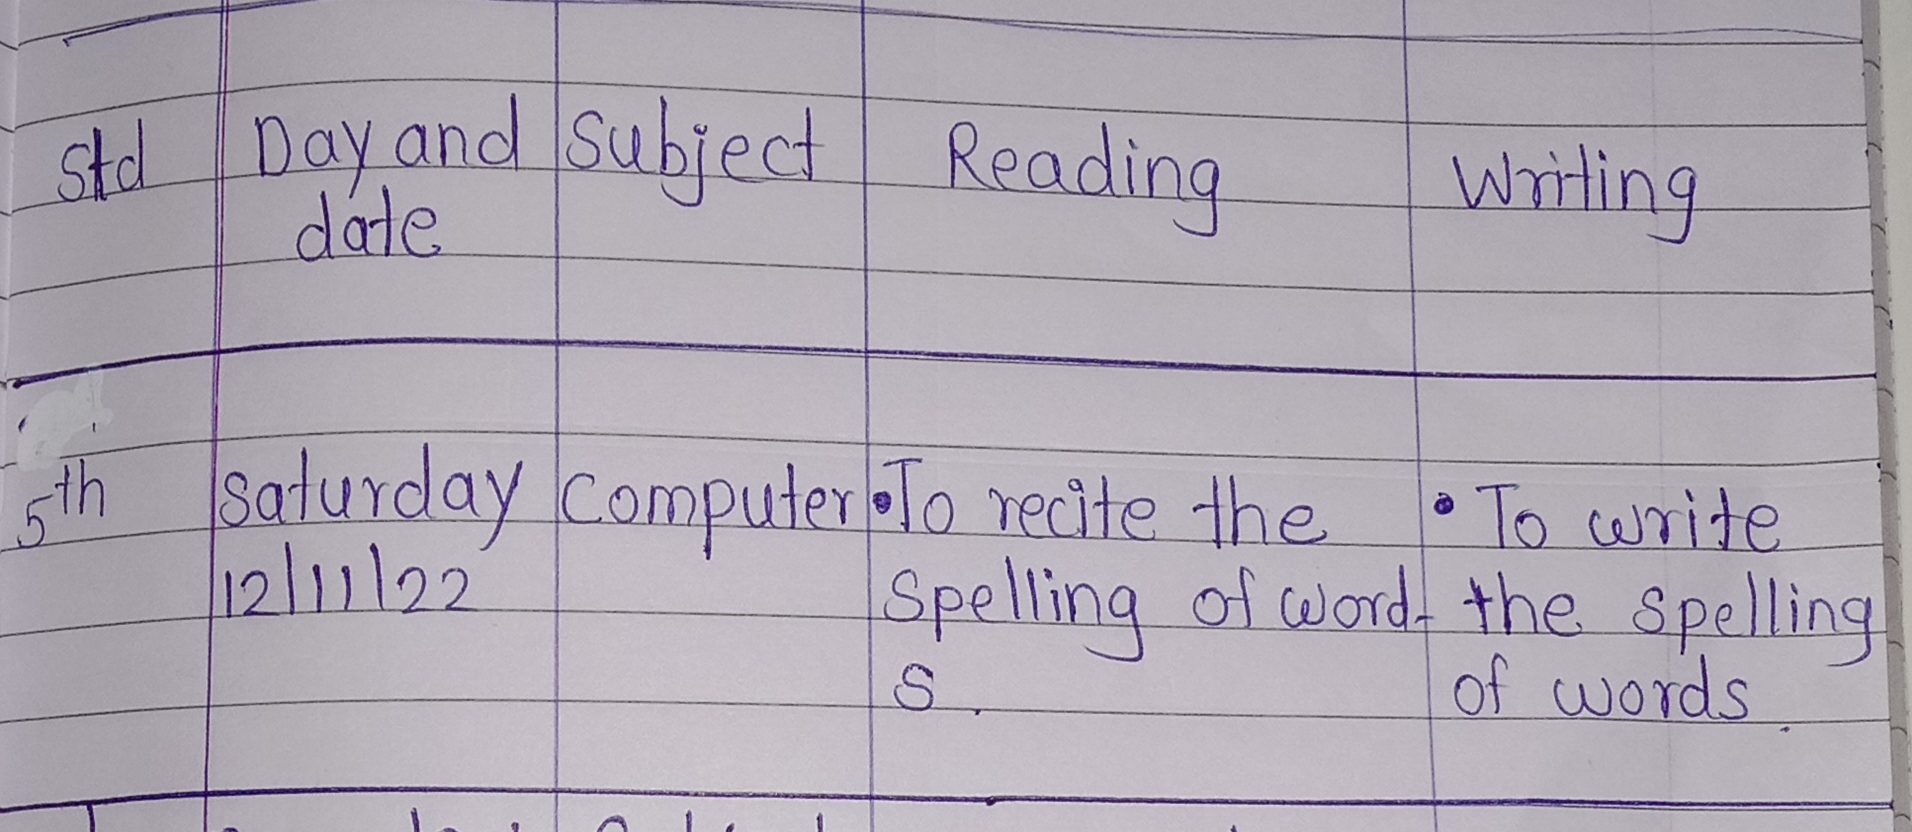 Std Day and Subject Reading Writing
date
5th Saturday Computer • To recite the • To write
12/11/22 Spelling of word- the spelling
s. of words.